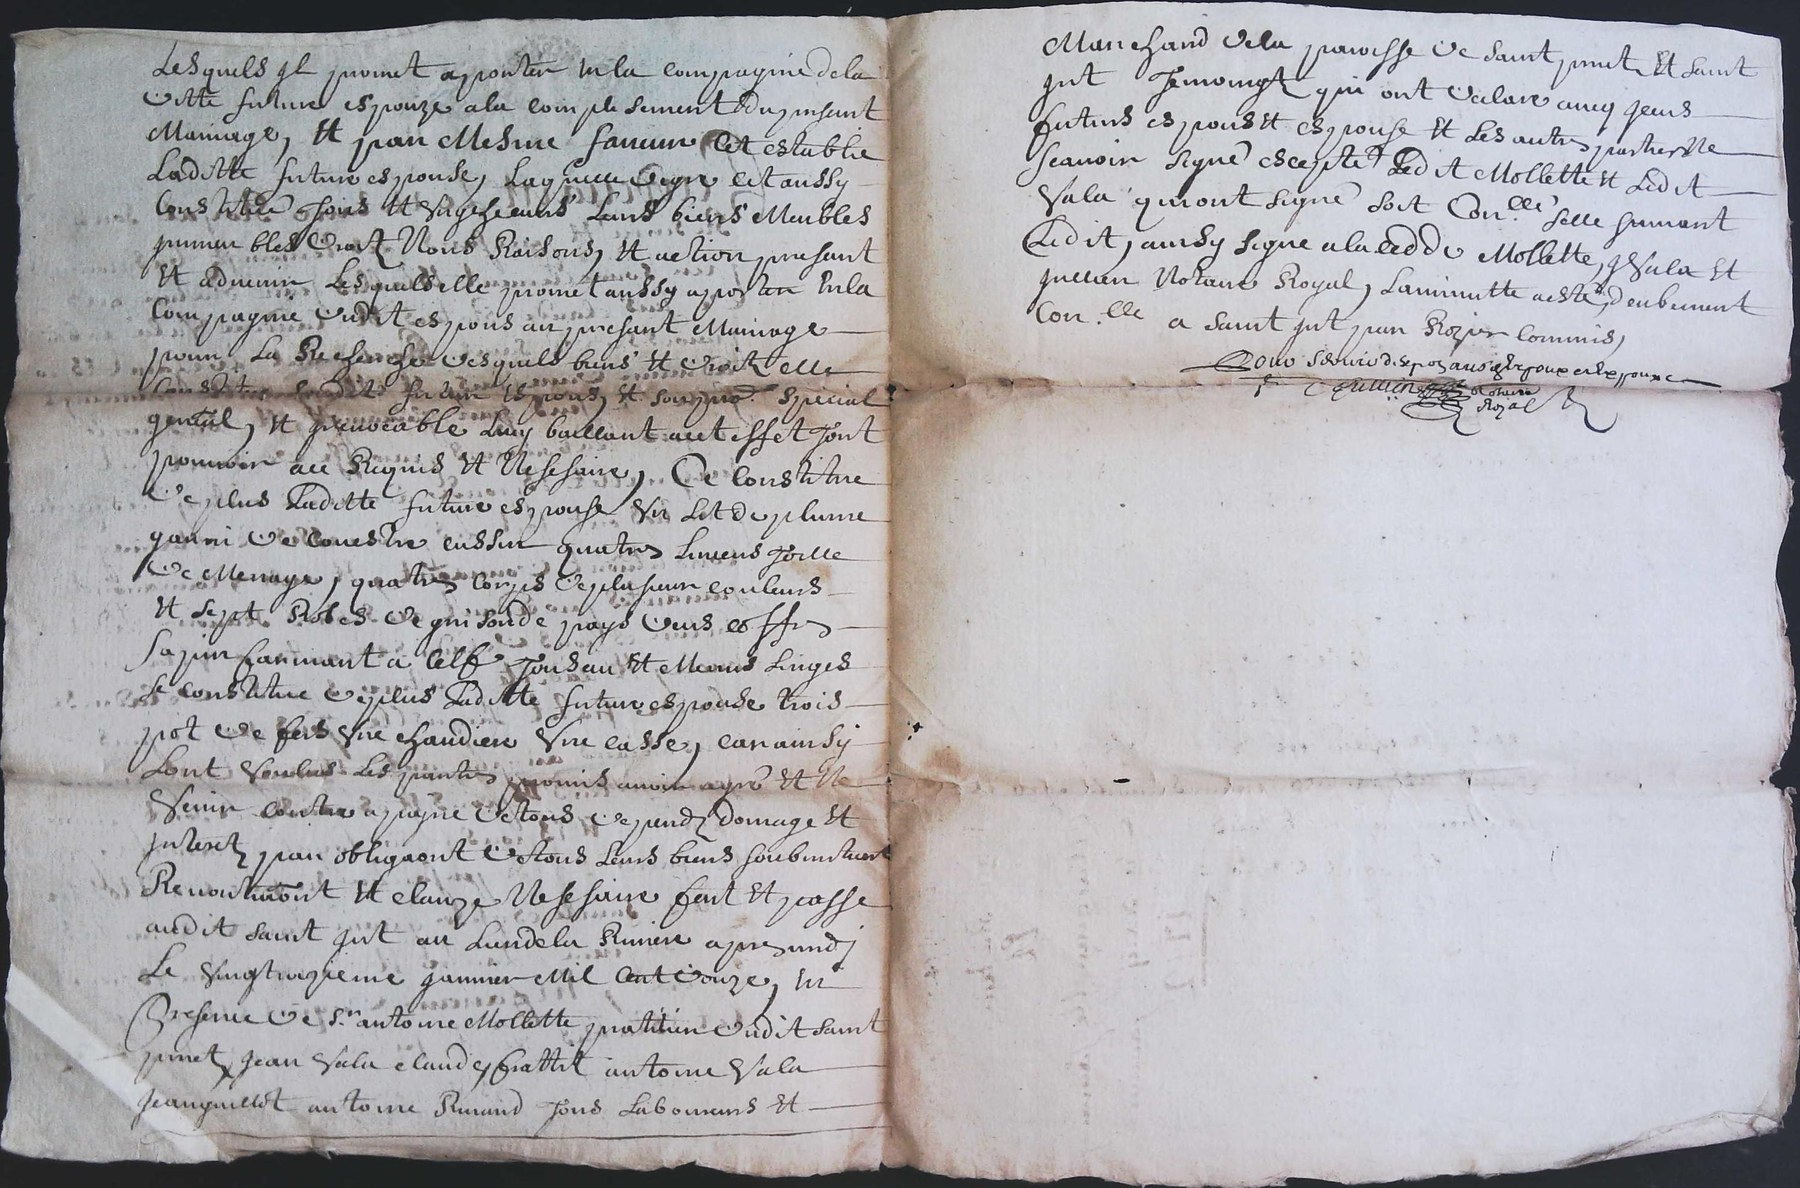 Lesquels jl promet aporter en la compagnie de la
ditte future espouze a la complisement du present
Mariage, et par mesme faveur cet establie
Laditte future espouse, laquelle degre cet aussy
Constitue tous et ungchceuns leurs biens Meubles
jmmeubles droit Noms Raisons, et action presant
et advenir lesquels elle promet aussy aporter en la
Compagnie dudit espous au presant Mariage
pour la Recherche desquels biens et droit elle
Constitue ledit futur espous, et son pro.r special
genral, et jrrevocable luy baillant a cet effet tout
pouvoir a ce Requis et Nesesaire, Ce Constitue
de plus Laditte future espouse un lit de plume
garni de couestre cussin quatre linceus toille
de Menage, quatre corps de plusieur couleurs
et sept Robes de grisou de pays deus coffre
sapin farmant a clef tousau et Menus linges
se constitue de plus Laditte future espouse trois
pot de fert une chaudiere une casse, car ainsy
lont voulus les parties promis avoir agre et Ne
Venir contre a payne de tous depends domage et
jnterets par obligaont de tous leurs biens soubmituont
Renontiaont et clauze Nesesaire fait et passe
audit saint just au lieu de la Riviere apres midj
Le vingtroizieme janvier Mil cent douze, en
Presence de s.r antoine Mollette pratitien dudit saint
priuet, jean Vala claude frattit antoine Vala
jean guillot antoine Ravand tous Laboureurs et
Marchand de la paroisse de saint priuet et saint
just temoingt qui ont declare avecq jeus
futurs espous et espouse et les autres parties Ne
scavoir signe escepte Ledit Mollette et Ledit
Vala qui ont signe soit Con.lle selle suivant
Ledit, ainsy signe a la cedde Mollette, j Vala et
jullien Notaire Royal, la minutte a este deubement
Con.lle a saint just par Rozier commis,
jullien Notaire
Royal